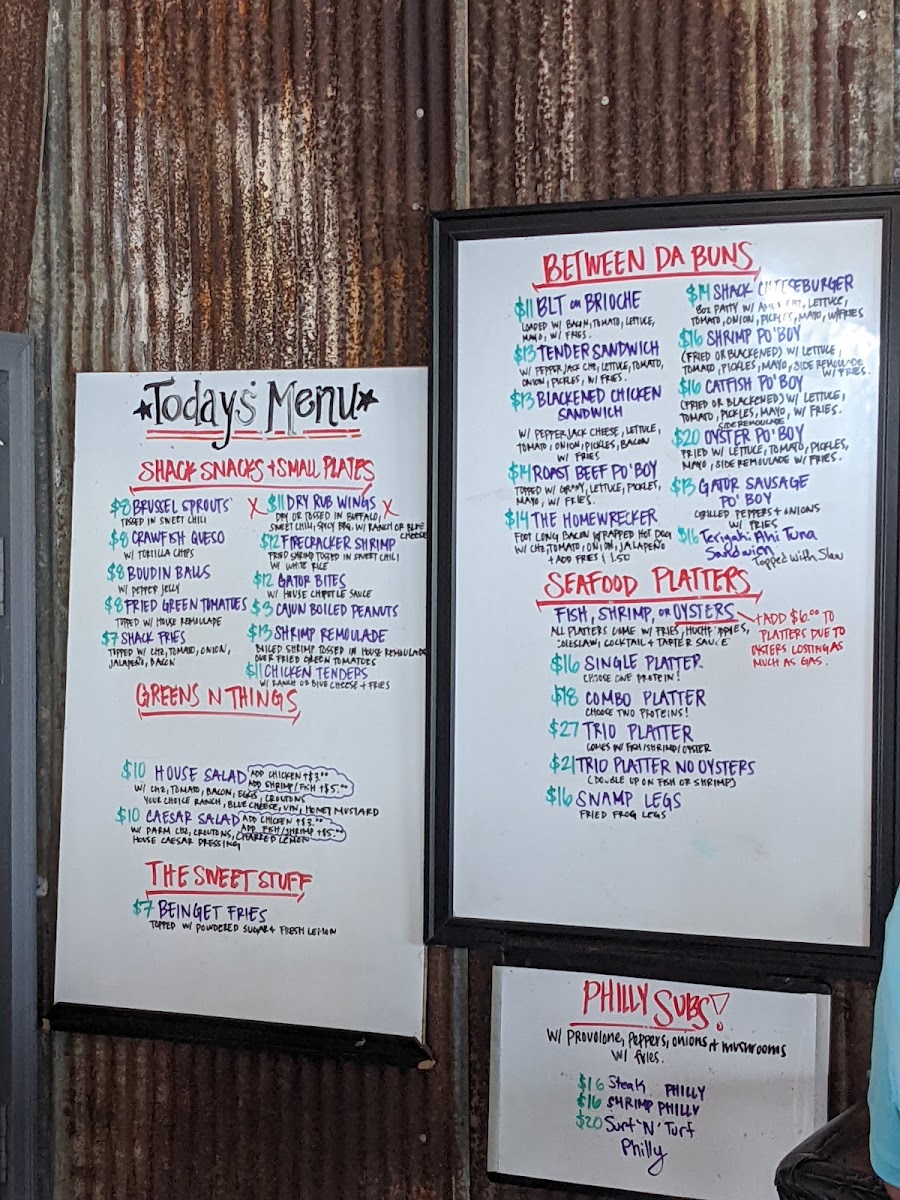 Today's Menu
SHACK SNACKS + SMALL PLATES
$8 BRUSSEL SPROUTS
TOSSED IN SWEET CHILI
$8 CRAWFISH QUESO
W/ TORILLA CHIPS
$8 BOUDIN BALLS
W/ PEPPER JELLY
$8 FRIED GREEN TOMATOES
TOPPED W/ HOUSE REMOULADE
$7 SHACK FRIES
TOPPED W/ CHZ, TOMATO, ONION,
JALAPEÑO, BACON
X $11 DRY RUB WINGS X
DRY OR TOSSED IN BUFFALO,
SWEET CHILI, SPICY BBQ. W/ RANCH OR BLUE
CHEESE
$12 FIRECRACKER SHRIMP
FRIED SHRIMP TOSSED IN SWEET CHILI
W/ WHITE RICE
$12 GATOR BITES
W/ HOUSE CHIPOTLE SAUCE
$3 CAJUN BOILED PEANUTS
$13 SHRIMP REMOULADE
BOILED SHRIMP TOSSED IN HOUSE REMOULADE
OVER FRIED GREEN TOMATOES
$11 CHICKEN TENDERS
W/ RANCH OR BLUE CHEESE + FRIES
GREENS N THINGS
$10 HOUSE SALAD ADD CHICKEN +$3.00
ADD SHRIMP/FISH +$5.00
W/ CHZ, TOMATO, BACON, EGGS, CROUTONS
YOUR CHOICE RANCH, BLUE CHEESE, VIN, HONEY MUSTARD
$10 CAESAR SALAD ADD CHICKEN +$3.00
ADD FISH/SHRIMP +$5.00
W/ PARM CHZ, CROUTONS, CHARRED LEMON
HOUSE CAESAR DRESSING
THE SWEET STUFF
$7 BEINGET FRIES
TOPPED W/ POWDERED SUGAR + FRESH LEMON
BETWEEN DA BUNS
$11 BLT on BRIOCHE
LOADED W/ BACON, TOMATO, LETTUCE,
MAYO, W/ FRIES.
$13 TENDER SANDWICH
W/ PEPPER JACK CHZ, LETTUCE, TOMATO,
ONION, PICKLES, W/ FRIES.
$13 BLACKENED CHICKEN
SANDWICH
W/ PEPPER JACK CHEESE, LETTUCE,
TOMATO, ONION, PICKLES, BACON
W/ FRIES
$14 ROAST BEEF PO'BOY
TOPPED W/ GRAVY, LETTUCE, PICKLES,
MAYO, W/ FRIES.
$14 THE HOMEWRECKER
FOOT LONG BACON WRAPPED HOT DOG
W/ CHZ, TOMATO, ONION, JALAPEÑO
+ ADD FRIES 1.50
$14 SHACK CHEESEBURGER
8OZ PATTY W/ CHZ, LETTUCE,
TOMATO, ONION, PICKLES, MAYO, W/FRIES
$16 SHRIMP PO'BOY
(FRIED OR BLACKENED) W/ LETTUCE,
TOMATO, PICKLES, MAYO, SIDE REMOULADE
W/ FRIES.
$16 CATFISH PO'BOY
(FRIED OR BLACKENED) W/ LETTUCE,
TOMATO, PICKLES, MAYO, W/ FRIES.
SIDE REMOULADE
$20 OYSTER PO'BOY
FRIED W/ LETTUCE, TOMATO, PICKLES,
MAYO, SIDE REMOULADE W/ FRIES.
$13 GATOR SAUSAGE
PO' BOY
GRILLED PEPPERS + ONIONS
W/ FRIES
$16 Teriyaki Ahi Tuna
Sandwich
Topped with Slaw
SEAFOOD PLATTERS
FISH, SHRIMP, OR OYSTERS
ALL PLATTERS COME W/ FRIES, HUSHPUPPIES,
COLESLAW, COCKTAIL + TARTER SAUCE
+ADD $6.00 TO
PLATTERS DUE TO
OYSTERS COSTING AS
MUCH AS GAS.
$16 SINGLE PLATTER
CHOOSE ONE PROTEIN!
$18 COMBO PLATTER
CHOOSE TWO PROTEINS!
$27 TRIO PLATTER
COMES W/ FISH/SHRIMP/OYSTER
$21 TRIO PLATTER NO OYSTERS
(DOUBLE UP ON FISH OR SHRIMP)
$16 SWAMP LEGS
FRIED FROG LEGS
PHILLY SUBS!
W/ Provolone, Peppers, onions + mushrooms
W/ fries.
$16 Steak PHILLY
$16 SHRIMP PHILLY
$20 Surf 'N' Turf
Philly